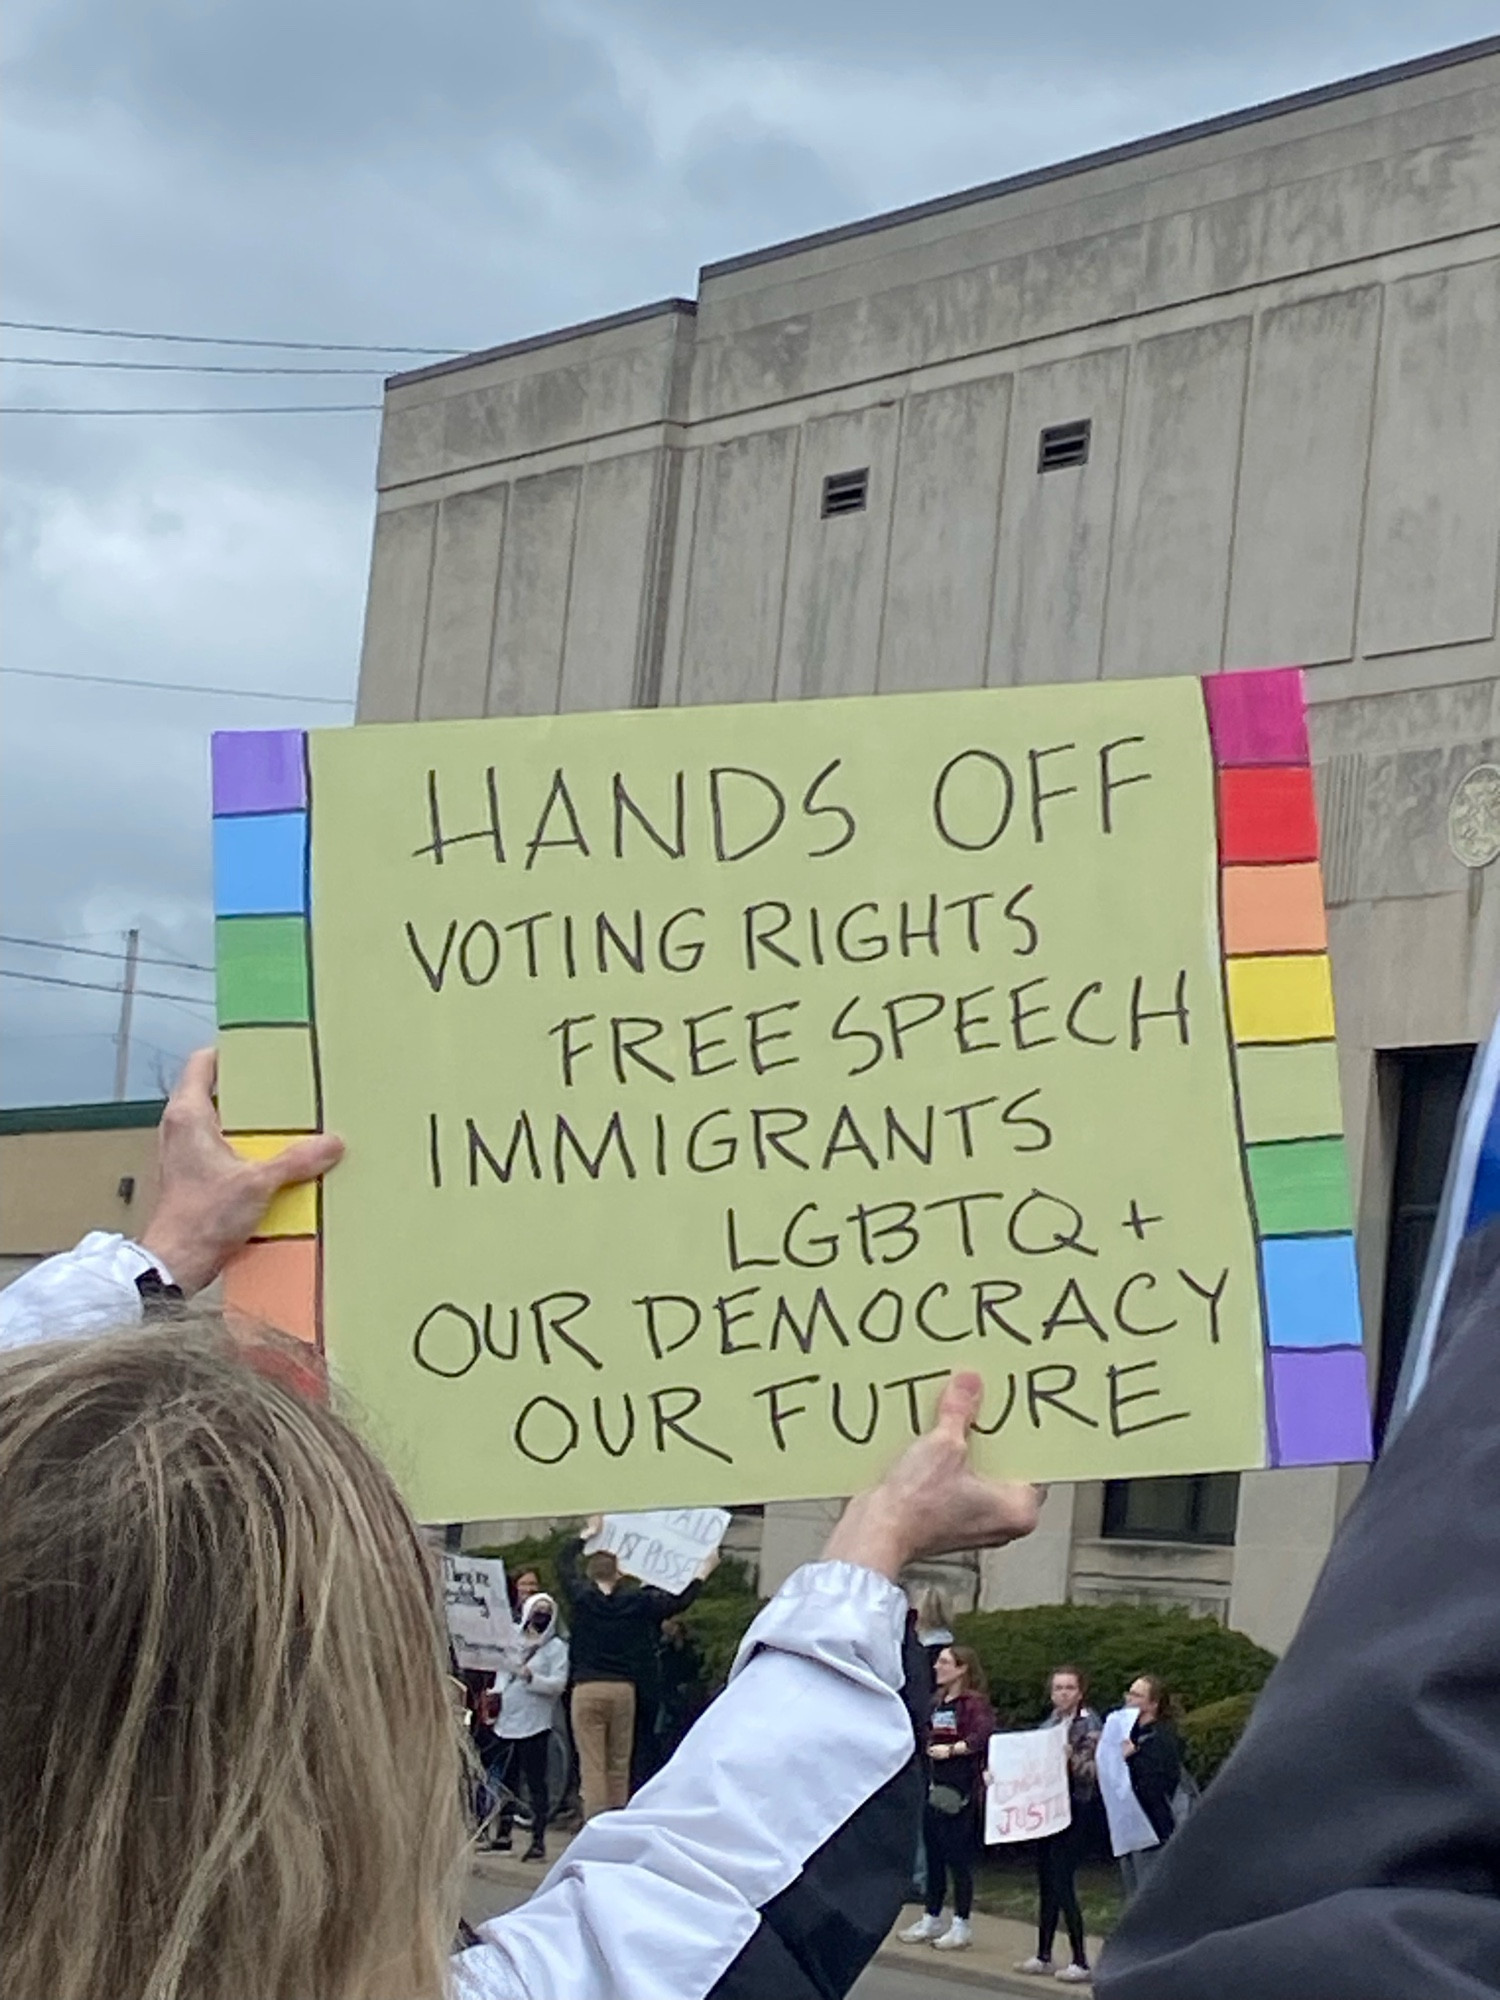 HANDS OFF
VOTING RIGHTS
FREE SPEECH
IMMIGRANTS
LGBTQ+
OUR DEMOCRACY
OUR FUTURE
There are